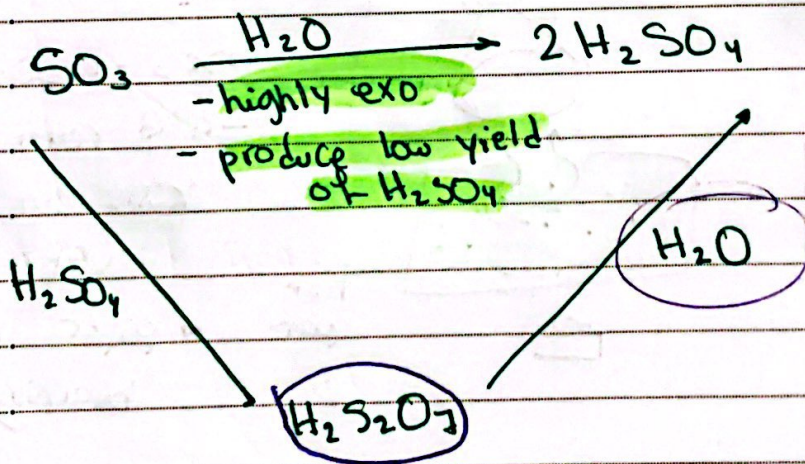 SO₃ H₂O → 2 H₂SO₄
- highly exo
- produce low yield
of H₂SO₄
H₂SO₄
H₂O
H₂S₂O₇